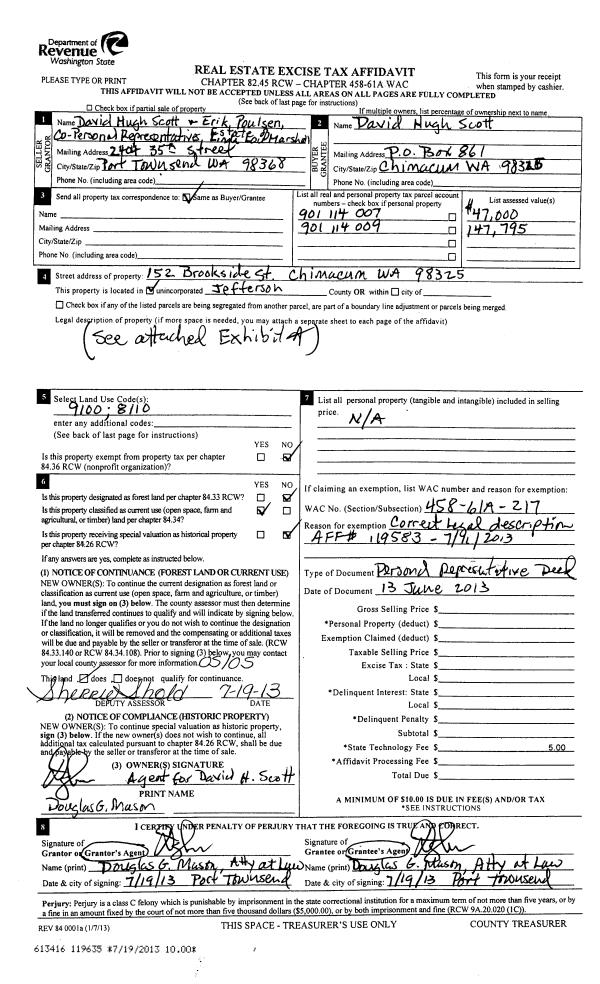 Department of
Revenue
Washington State
PLEASE TYPE OR PRINT
REAL ESTATE EXCISE TAX AFFIDAVIT
CHAPTER 82.45 RCW – CHAPTER 458-61A WAC
This form is your receipt
when stamped by cashier.
THIS AFFIDAVIT WILL NOT BE ACCEPTED UNLESS ALL AREAS ON ALL PAGES ARE FULLY COMPLETED
(See back of last page for instructions)
Check box if partial sale of property
If multiple owners, list percentage of ownership next to name.
1 Name David Hugh Scott & Erik Poulsen,
Co-Personal Representatives, Estate of
SELLER GRANTOR
Mailing Address 2404 35th Street
City/State/Zip Port Townsend WA 98368
Phone No. (including area code)
2 Name David Hugh Scott
BUYER GRANTEE
Mailing Address P.O. Box 861
City/State/Zip Chimacum WA 98325
Phone No. (including area code)
3 Send all property tax correspondence to: Same as Buyer/Grantee
Name
Mailing Address
City/State/Zip
Phone No. (including area code)
List all real and personal property tax parcel account
numbers – check box if personal property
901 114 007
901 114 009
List assessed value(s)
$47,000
147,795
4 Street address of property: 152 Brookside St. Chimacum WA 98325
This property is located in unincorporated Jefferson County OR within city of
Check box if any of the listed parcels are being segregated from another parcel, are part of a boundary line adjustment or parcels being merged.
Legal description of property (if more space is needed, you may attach a separate sheet to each page of the affidavit)
(See attached Exhibit A)
5 Select Land Use Code(s):
9100; 8110
enter any additional codes:
(See back of last page for instructions)
YES NO
Is this property exempt from property tax per chapter
84.36 RCW (nonprofit organization)?
6 YES NO
Is this property designated as forest land per chapter 84.33 RCW?
Is this property classified as current use (open space, farm and
agricultural, or timber) land per chapter 84.34?
Is this property receiving special valuation as historical property
per chapter 84.26 RCW?
If any answers are yes, complete as instructed below.
(1) NOTICE OF CONTINUANCE (FOREST LAND OR CURRENT USE)
NEW OWNER(S): To continue the current designation as forest land or
classification as current use (open space, farm and agriculture, or timber)
land, you must sign on (3) below. The county assessor must then determine
if the land transferred continues to qualify and will indicate by signing below.
If the land no longer qualifies or you do not wish to continue the designation
or classification, it will be removed and the compensating or additional taxes
will be due and payable by the seller or transferor at the time of sale. (RCW
84.33.140 or RCW 84.34.108). Prior to signing (3) below, you may contact
your local county assessor for more information. OS/OS
This land does does not qualify for continuance.
Sherrie Shold 7-19-13
DEPUTY ASSESSOR DATE
(2) NOTICE OF COMPLIANCE (HISTORIC PROPERTY)
NEW OWNER(S): To continue special valuation as historic property,
sign (3) below. If the new owner(s) does not wish to continue, all
additional tax calculated pursuant to chapter 84.26 RCW, shall be due
and payable by the seller or transferor at the time of sale.
(3) OWNER(S) SIGNATURE
Agent for David H. Scott
PRINT NAME
Douglas G. Mason
7 List all personal property (tangible and intangible) included in selling
price.
N/A
If claiming an exemption, list WAC number and reason for exemption:
WAC No. (Section/Subsection) 458-61A-217
Reason for exemption Correct legal description
AFF# 119583 - 7/9/2013
Type of Document Personal Representative Deed
Date of Document 13 June 2013
Gross Selling Price $
*Personal Property (deduct) $
Exemption Claimed (deduct) $
Taxable Selling Price $
Excise Tax : State $
Local $
*Delinquent Interest: State $
Local $
*Delinquent Penalty $
Subtotal $
*State Technology Fee $ 5.00
*Affidavit Processing Fee $
Total Due $
A MINIMUM OF $10.00 IS DUE IN FEE(S) AND/OR TAX
*SEE INSTRUCTIONS
8 I CERTIFY UNDER PENALTY OF PERJURY THAT THE FOREGOING IS TRUE AND CORRECT.
Signature of
Grantor or Grantor's Agent
Name (print) Douglas G. Mason, Atty at Law
Date & city of signing: 7/19/13 Port Townsend
Signature of
Grantee or Grantee's Agent
Name (print) Douglas G. Mason, Atty at Law
Date & city of signing: 7/19/13 Port Townsend
Perjury: Perjury is a class C felony which is punishable by imprisonment in the state correctional institution for a maximum term of not more than five years, or by
a fine in an amount fixed by the court of not more than five thousand dollars ($5,000.00), or by both imprisonment and fine (RCW 9A.20.020 (1C)).
REV 84 0001a (1/7/13)
THIS SPACE - TREASURER'S USE ONLY
COUNTY TREASURER
613416 119635 *7/19/2013 10.00*